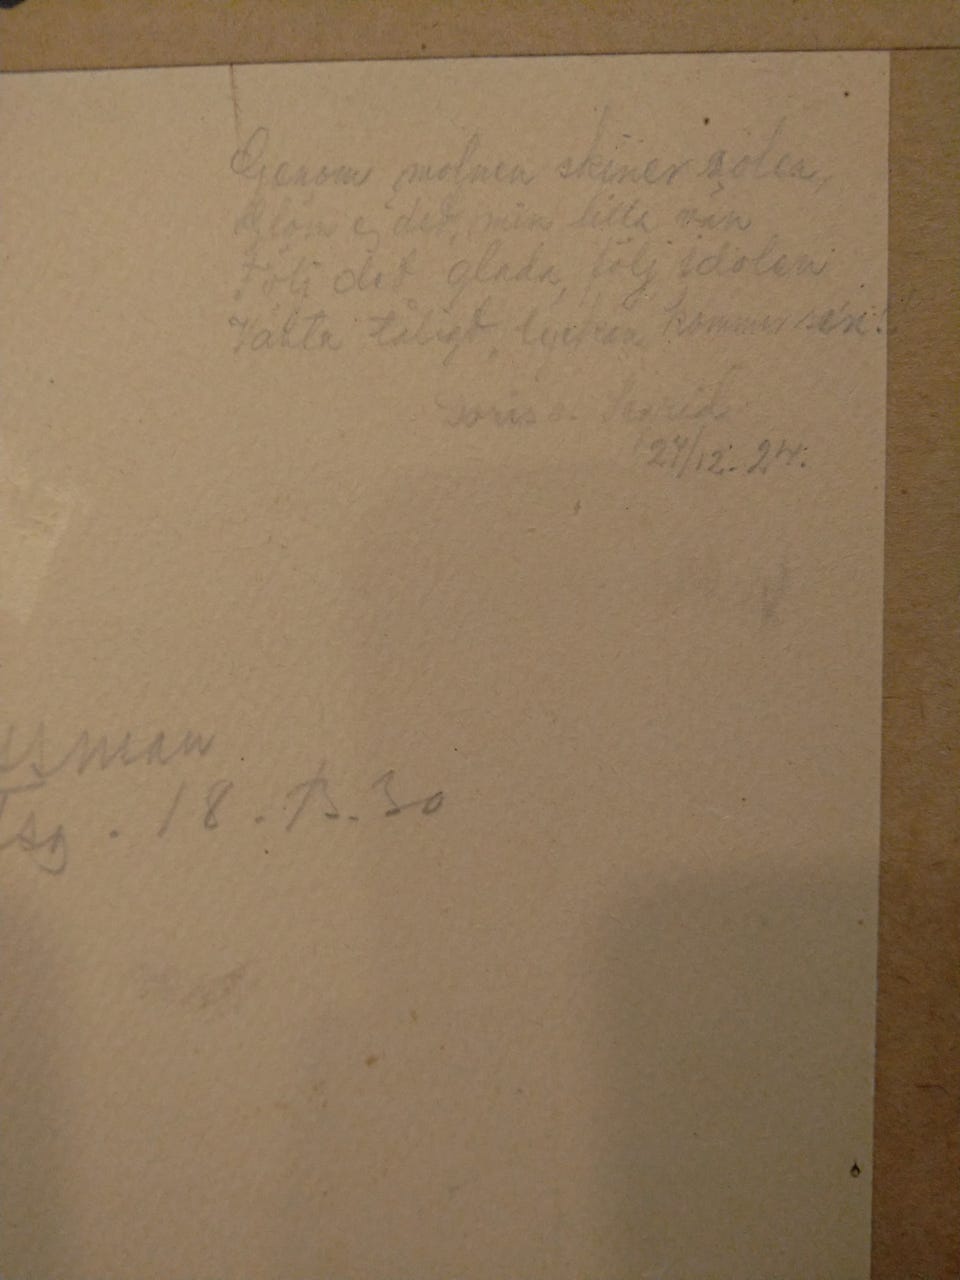 Genom molnen skiner solen,
Glöm ej det, min lilla vän
Följ det glada, följ idolen
Vänta tåligt, lyckan kommer sen!
Doris o. Ingrid
24/12. 24.
man
. 18 . B. 30